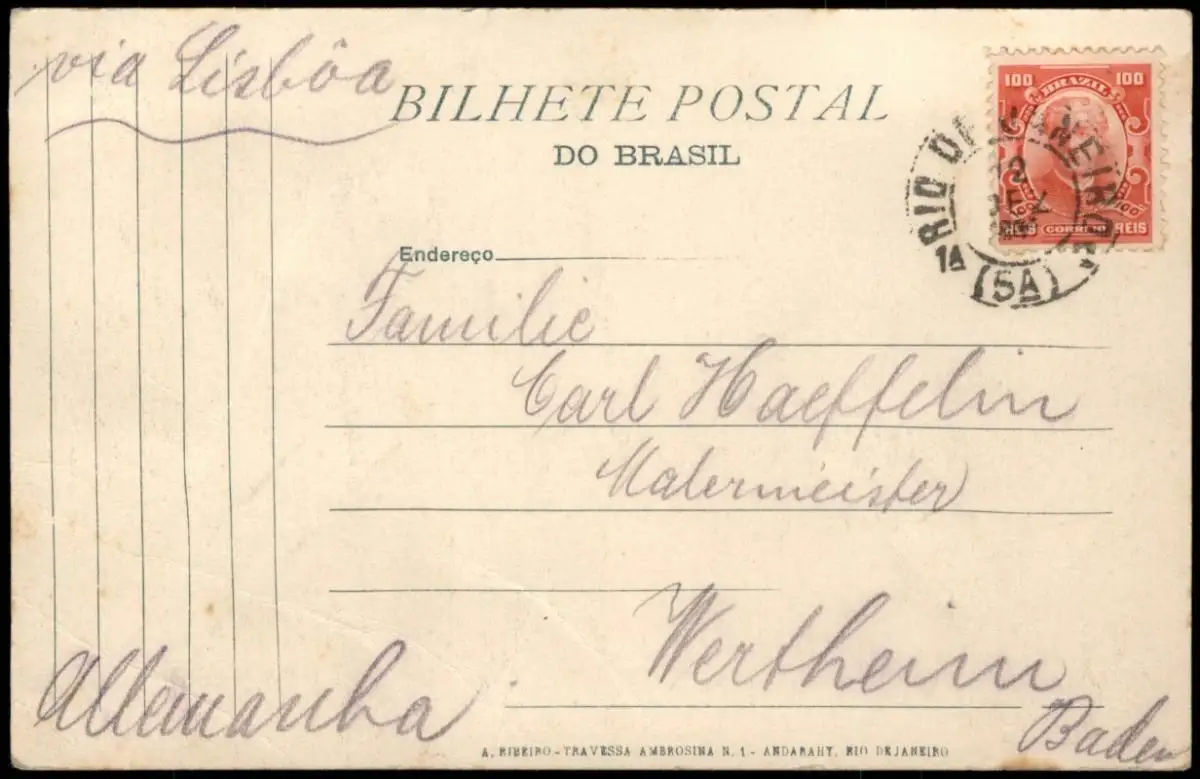 via Lisbôa
BILHETE POSTAL
DO BRASIL
100 100
BRAZIL
REIS CORREIO REIS
RIO DE JANEIRO
1A
(SA)
Endereço
Familie
Carl Haeffelin
Malermeister
Wertheim
Allemanha
Baden
A. RIBEIRO - TRAVESSA AMBROSINA N. 1 - ANDARAHY, RIO DE JANEIRO